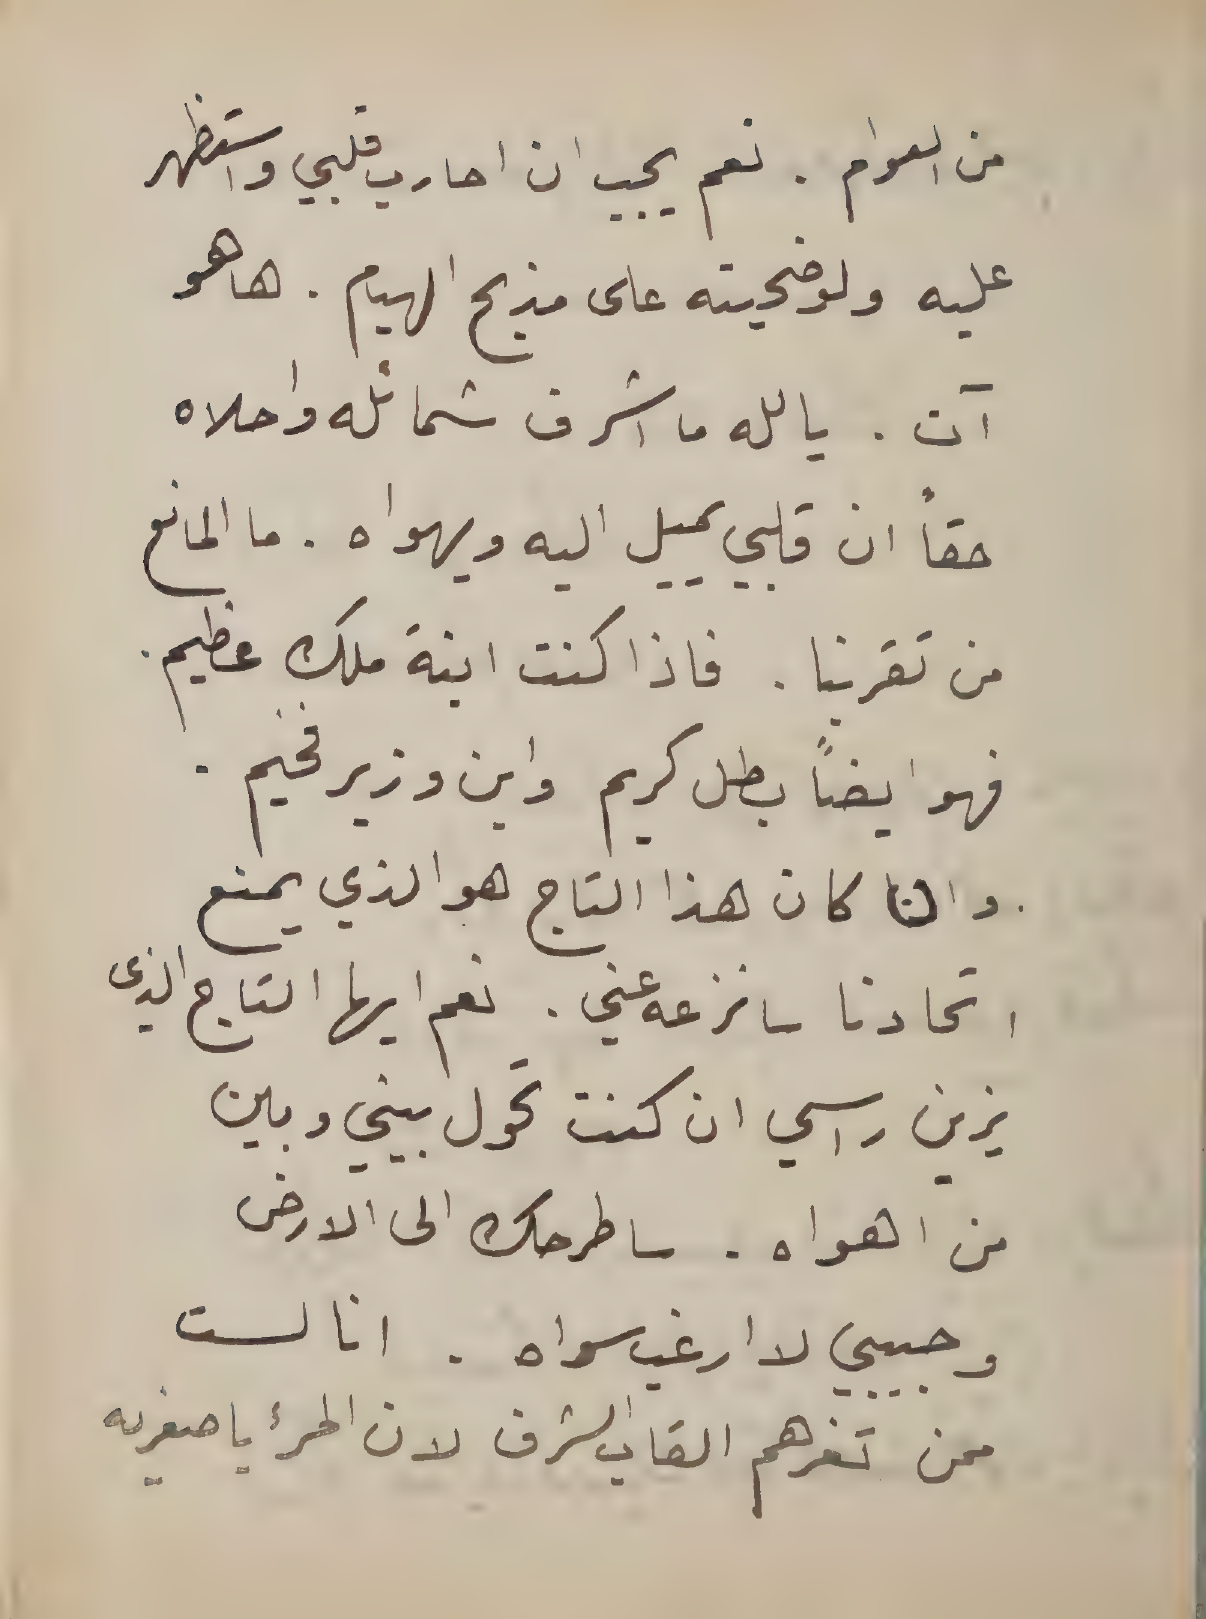 من العوام . نعم يجب ان احارب قلبي واستظهر
عليه ولو ضحيته على مذبح الهيام . ها هو
آت . يالله ما اشرف شمائله واحلاه
حقاً ان قلبي يميل اليه ويهواه . ما المانع
من تقربنا . فاذا كنت ابنة ملك عظيم .
فهو ايضاً بطل كريم وابن وزير فخيم .
. وان كان هذا التاج هو الذي يمنع
اتحادنا سانزعه عني . نعم ايها التاج الذي
يزين راسي ان كنت تحول بيني وبين
من اهواه . ساطرحك الى الارض
وحبيبي لا ارغب سواه . انا لست
ممن تغرهم القاب الشرف لان المرء باصغريه